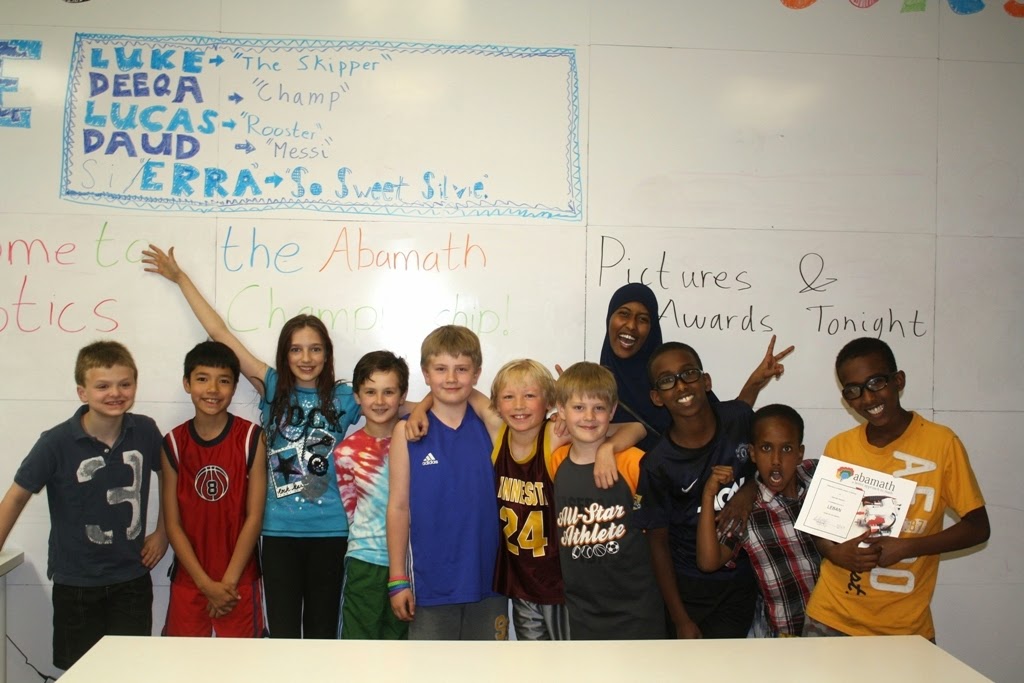 E
LUKE → "The Skipper"
DEEQA → "Champ"
LUCAS → "Rooster"
DAUD → "Messi"
Si/ERRA → "So Sweet Silvie"
ome to the Abamath
otics Championship!
Pictures &
Awards Tonight
3
8
ROCK
adidas
INNESOT
24
All-Star
Athlete
abamath
LEBAN